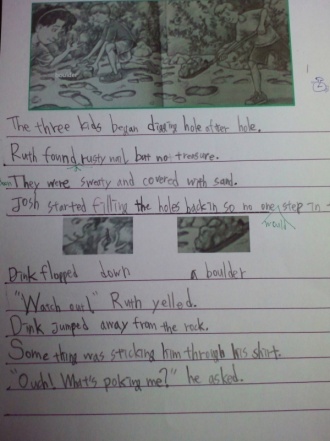 The three kids began digging hole after hole.
Ruth found a rusty nail but no treasure.
They were sweaty and covered with sand.
Josh started filling the holes back in so no one step in
would
Dink flopped down a boulder
"Watch out!" Ruth yelled.
Dink jumped away from the rock.
Some thing was sticking him through his shirt.
"Ouch! What's poking me?" he asked.